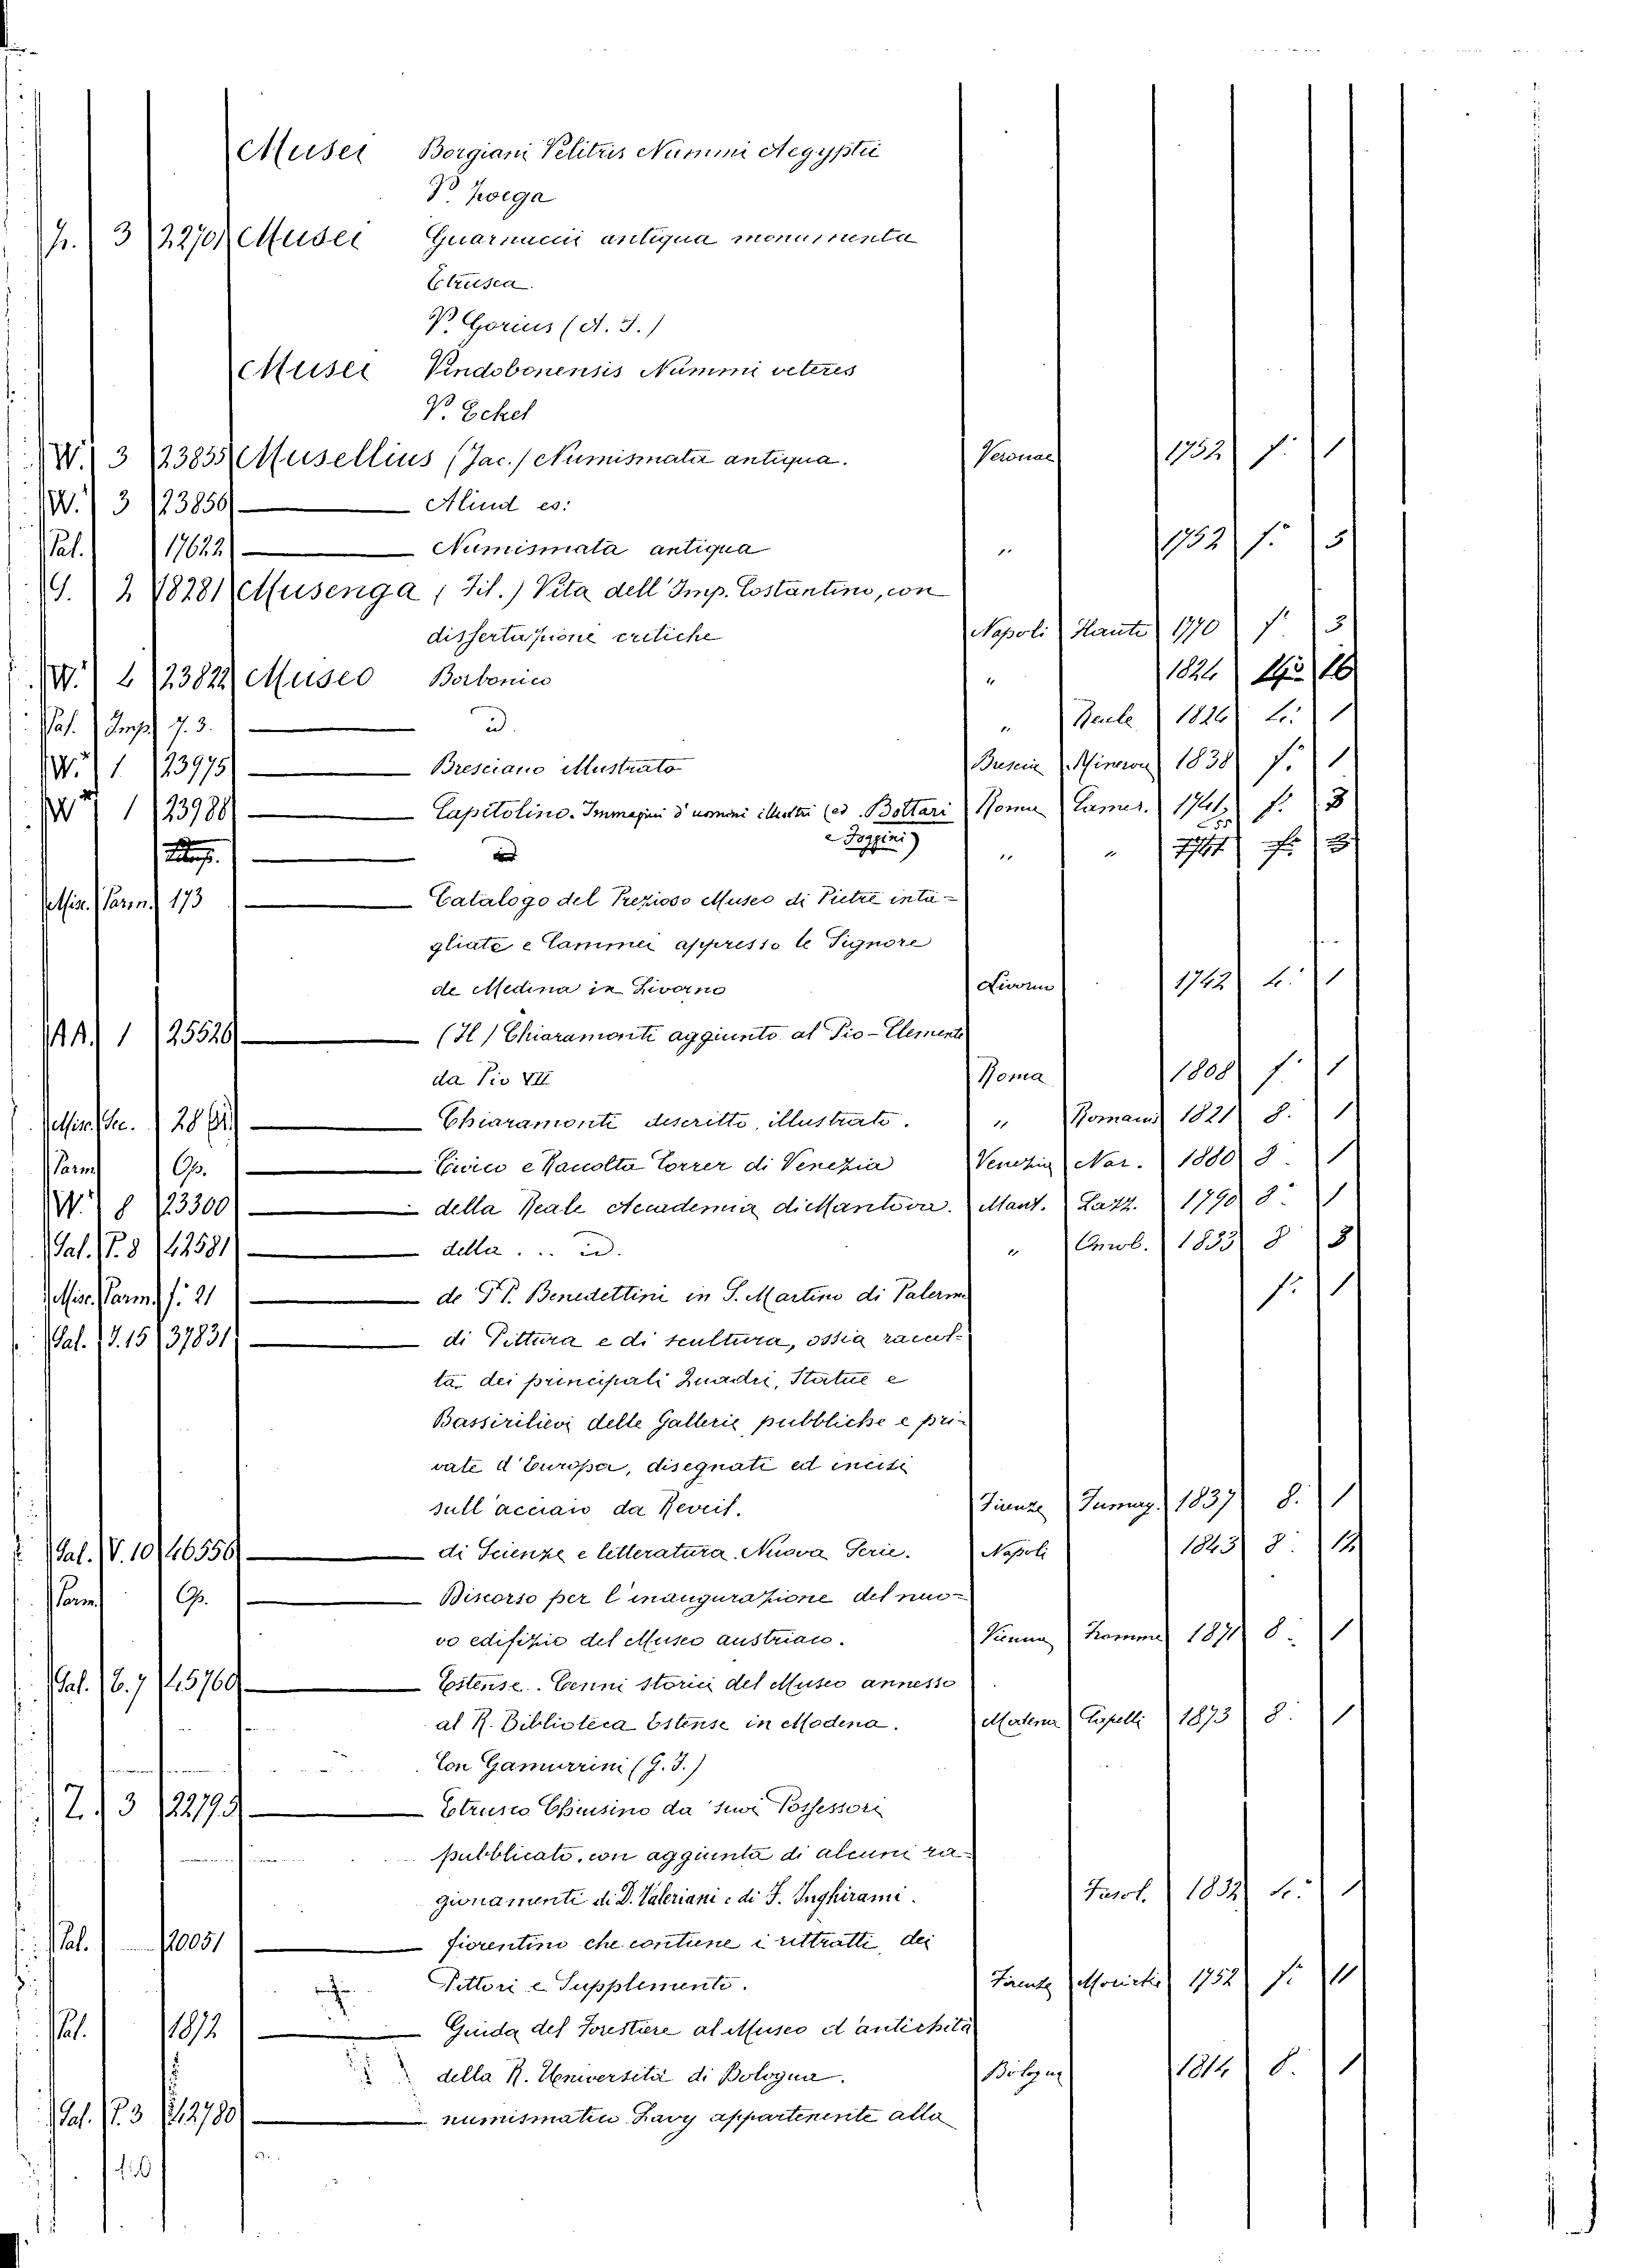 Musei Borgiani Velitris Nummi Aegyptii
V. Zoega
Z. 3 22701 Musei Guarnacii antiqua monumenta
Etrusca.
V. Gorius (A. F.)
Musei Vindobonensis Nummi veteres
V. Eckel
W. 3 23855 Musellius (Jac.) Numismata antiqua. Veronae 1752 f. 1
W. 3 23856 — Aliud es:
Pal. 17622 — Numismata antiqua " 1752 f. 3
G. 2 18281 Musenga (Fil.) Vita dell' Imp. Costantino, con
dissertazione critiche Napoli Haute 1770 f. 3
W. 2 23822 Museo Borbonico " 1824 4.° 16
Pal. Imp. 7. 3. — id. " Reale 1824 4.° 1
W. 1 23975 — Bresciano illustrato Brescia Minerva 1838 f. 1
W 1 23988 — Capitolino. Immagini d'uomini illustri (ed. Bottari Roma Camer. 1741 f. 3
e Foggini)
— id " " f. 3
Misc. Parm. 173 — Catalogo del Prezioso Museo di Pietre inta-
gliate e Cammei appresso le Signore
de Medina in Livorno Livorno 1742 4. 1
AA. 1 25526 — (Il) Chiaramonti aggiunto al Pio-Clemente
da Pio VII Roma 1808 f. 1
Misc. Sec. 28 — Chiaramonti descritto, illustrato. " Romanis 1821 8. 1
Parm Op. — Civico e Raccolta Correr di Venezia Venezia Nar. 1880 8. 1
W. 8 23300 — della Reale Accademia di Mantova. Mant. Pazz. 1790 8. 1
Pal. P. 8 42581 — della . . . id. " 1833 8 3
Misc. Parm. f. 21 — de PP. Benedettini in S. Martino di Palermo f. 1
Pal. F. 15 37831 — di Pittura e di scultura, ossia raccol-
ta dei principali Quadri, Statue e
Bassirilievi delle Gallerie pubbliche e pri-
vate d'Europa, disegnati ed incisi
sull'acciaio da Reveil. Firenze Fumag. 1837 8. 1
Pal. V. 10 46556 — di Scienze e letteratura. Nuova Serie. Napoli 1843 8. 12
Parm. Op. — Discorso per l'inaugurazione del nuo-
vo edifizio del Museo austriaco. Vienna Somme 1871 8. 1
Pal. C. 7 45760 — Estense. Cenni storici del Museo annesso
al R. Biblioteca Estense in Modena. Modena Cappelli 1873 8. 1
Con Gamurrini (G. F.)
Z. 3 22795 — Etrusco Chiusino da suoi Possessori
pubblicato, con aggiunta di alcuni ra-
gionamenti di D. Valeriani e di F. Inghirami. Fiesol. 1832 4. 1
Pal. 20051 — fiorentino che contiene i rittratti dei
Pittori e Supplemento. Firenze Moücke 1752 f. 11
Pal. 1872 — Guida del Forestiere al Museo d'antichità
della R. Università di Bologna. Bologna 1814 8. 1
Pal. P. 3 42780 — numismatico Lavy appartenente alla